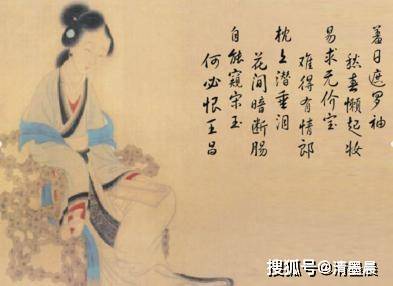 羞日遮罗袖
愁春懒起妆
易求无价宝
难得有情郎
枕上潜垂泪
花间暗断肠
自能窥宋玉
何必恨王昌
搜狐号@清墨晨